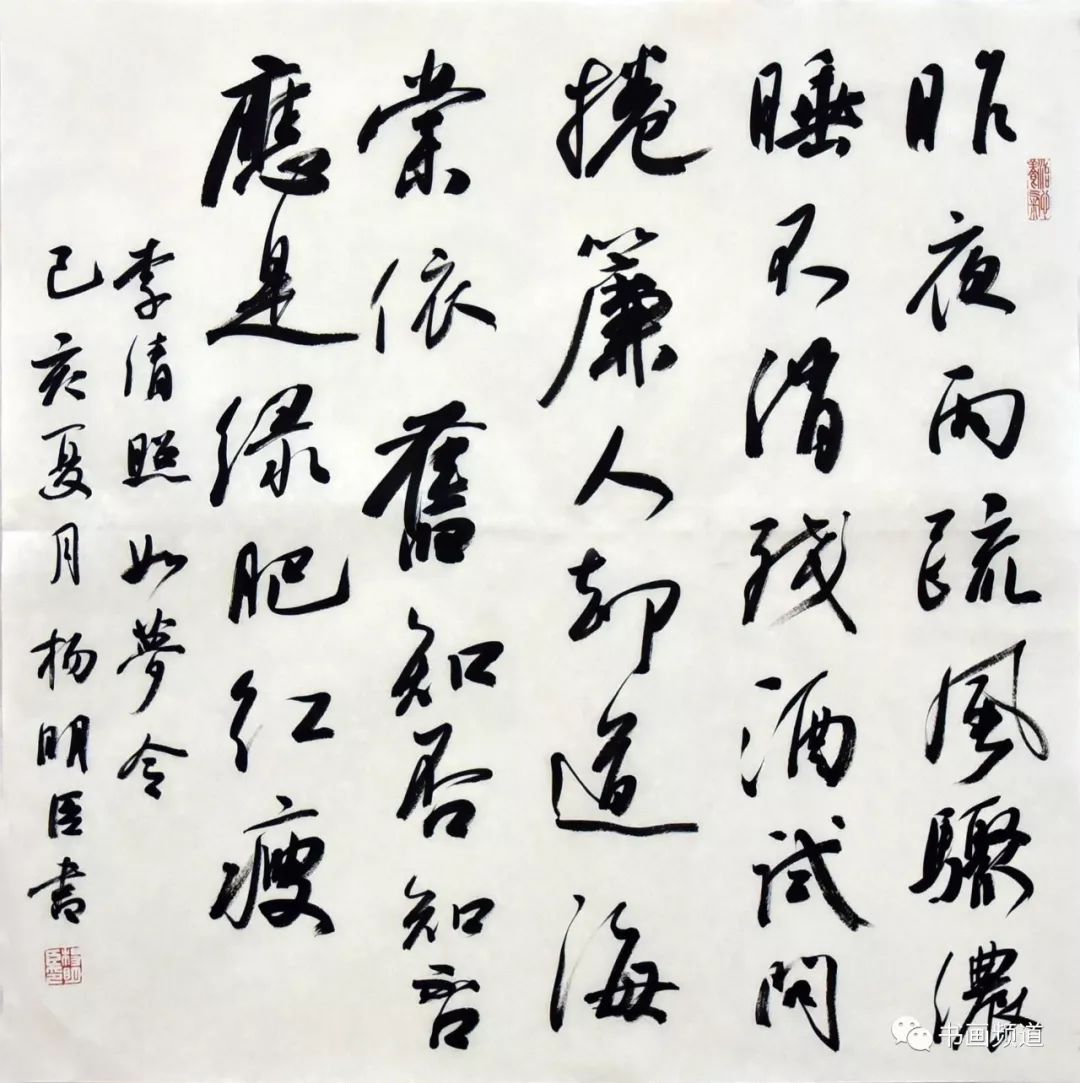 昨夜雨疏風驟濃
睡不消残酒試問
捲簾人却道海
棠依舊知否知否
應是绿肥红瘦
李清照如夢令
己亥夏月杨明臣書
书画频道